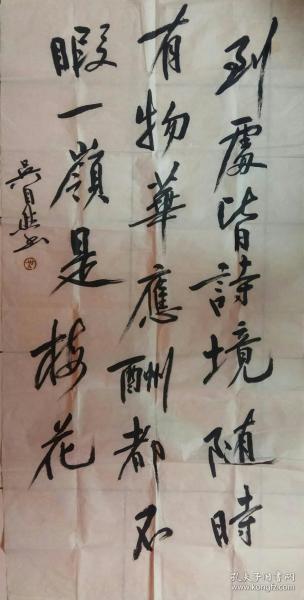 到處皆詩境隨時
有物華應酬都不
暇一嶺是梅花
孔夫子旧书网